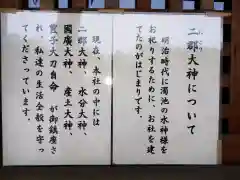 二郡大神について
明治時代に濁池の水神様を
お祀りするために、お社を建
てたのがはじまりです。
現在、本社の中には
二郡大神、水分大神、
國廣大神、産土大神、
が御鎮座さ
れ、私達の生活全般を守っ
てくださっています。